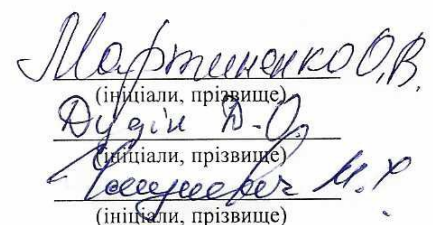 Мартиненко О.В.
(ініціали, прізвище)
Дудін Д.О.
(ініціали, прізвище)
М.Р
(ініціали, прізвище)